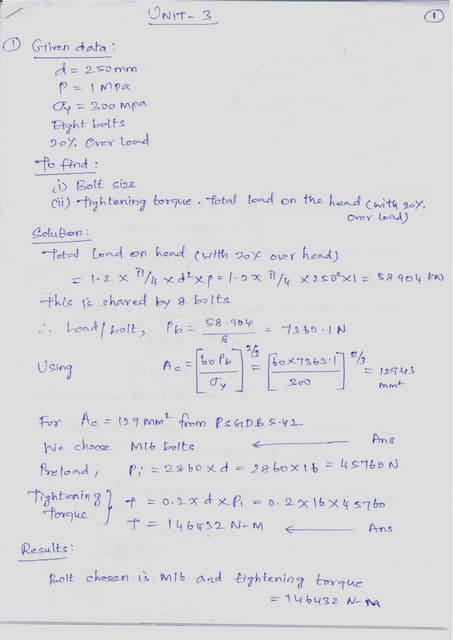 UNIT-3
①
① Given data:
d = 250mm
P = 1 Mpa
σy = 300 Mpa
Eight bolts
20%. Over load
To find:
(i) Bolt size
(ii) tightening torque. total load on the head (with 20%. over load)
Solution:
Total load on head (with 20% over head)
= 1.2 x π/4 x d² x p = 1.2 x π/4 x 250² x 1 = 58.904 KN
this is shared by 8 bolts
∴ Load/bolt, Pb = 58.904/8 = 7363.1 N
Using Ac = [60 Pb/σy]^2/3 = [60x7363.1/300]^2/3 = 129.43 mm²
For Ac = 129 mm² from PSGDB 5.42
We choose M16 bolts ← Ans
Preload, Pi = 2860 x d = 2860x16 = 45760 N
Tightening torque } t = 0.2 x d x Pi = 0.2 x 16 x 45760
T = 146432 N-M ← Ans
Results:
Bolt chosen is M16 and tightening torque
= 146432 N-M